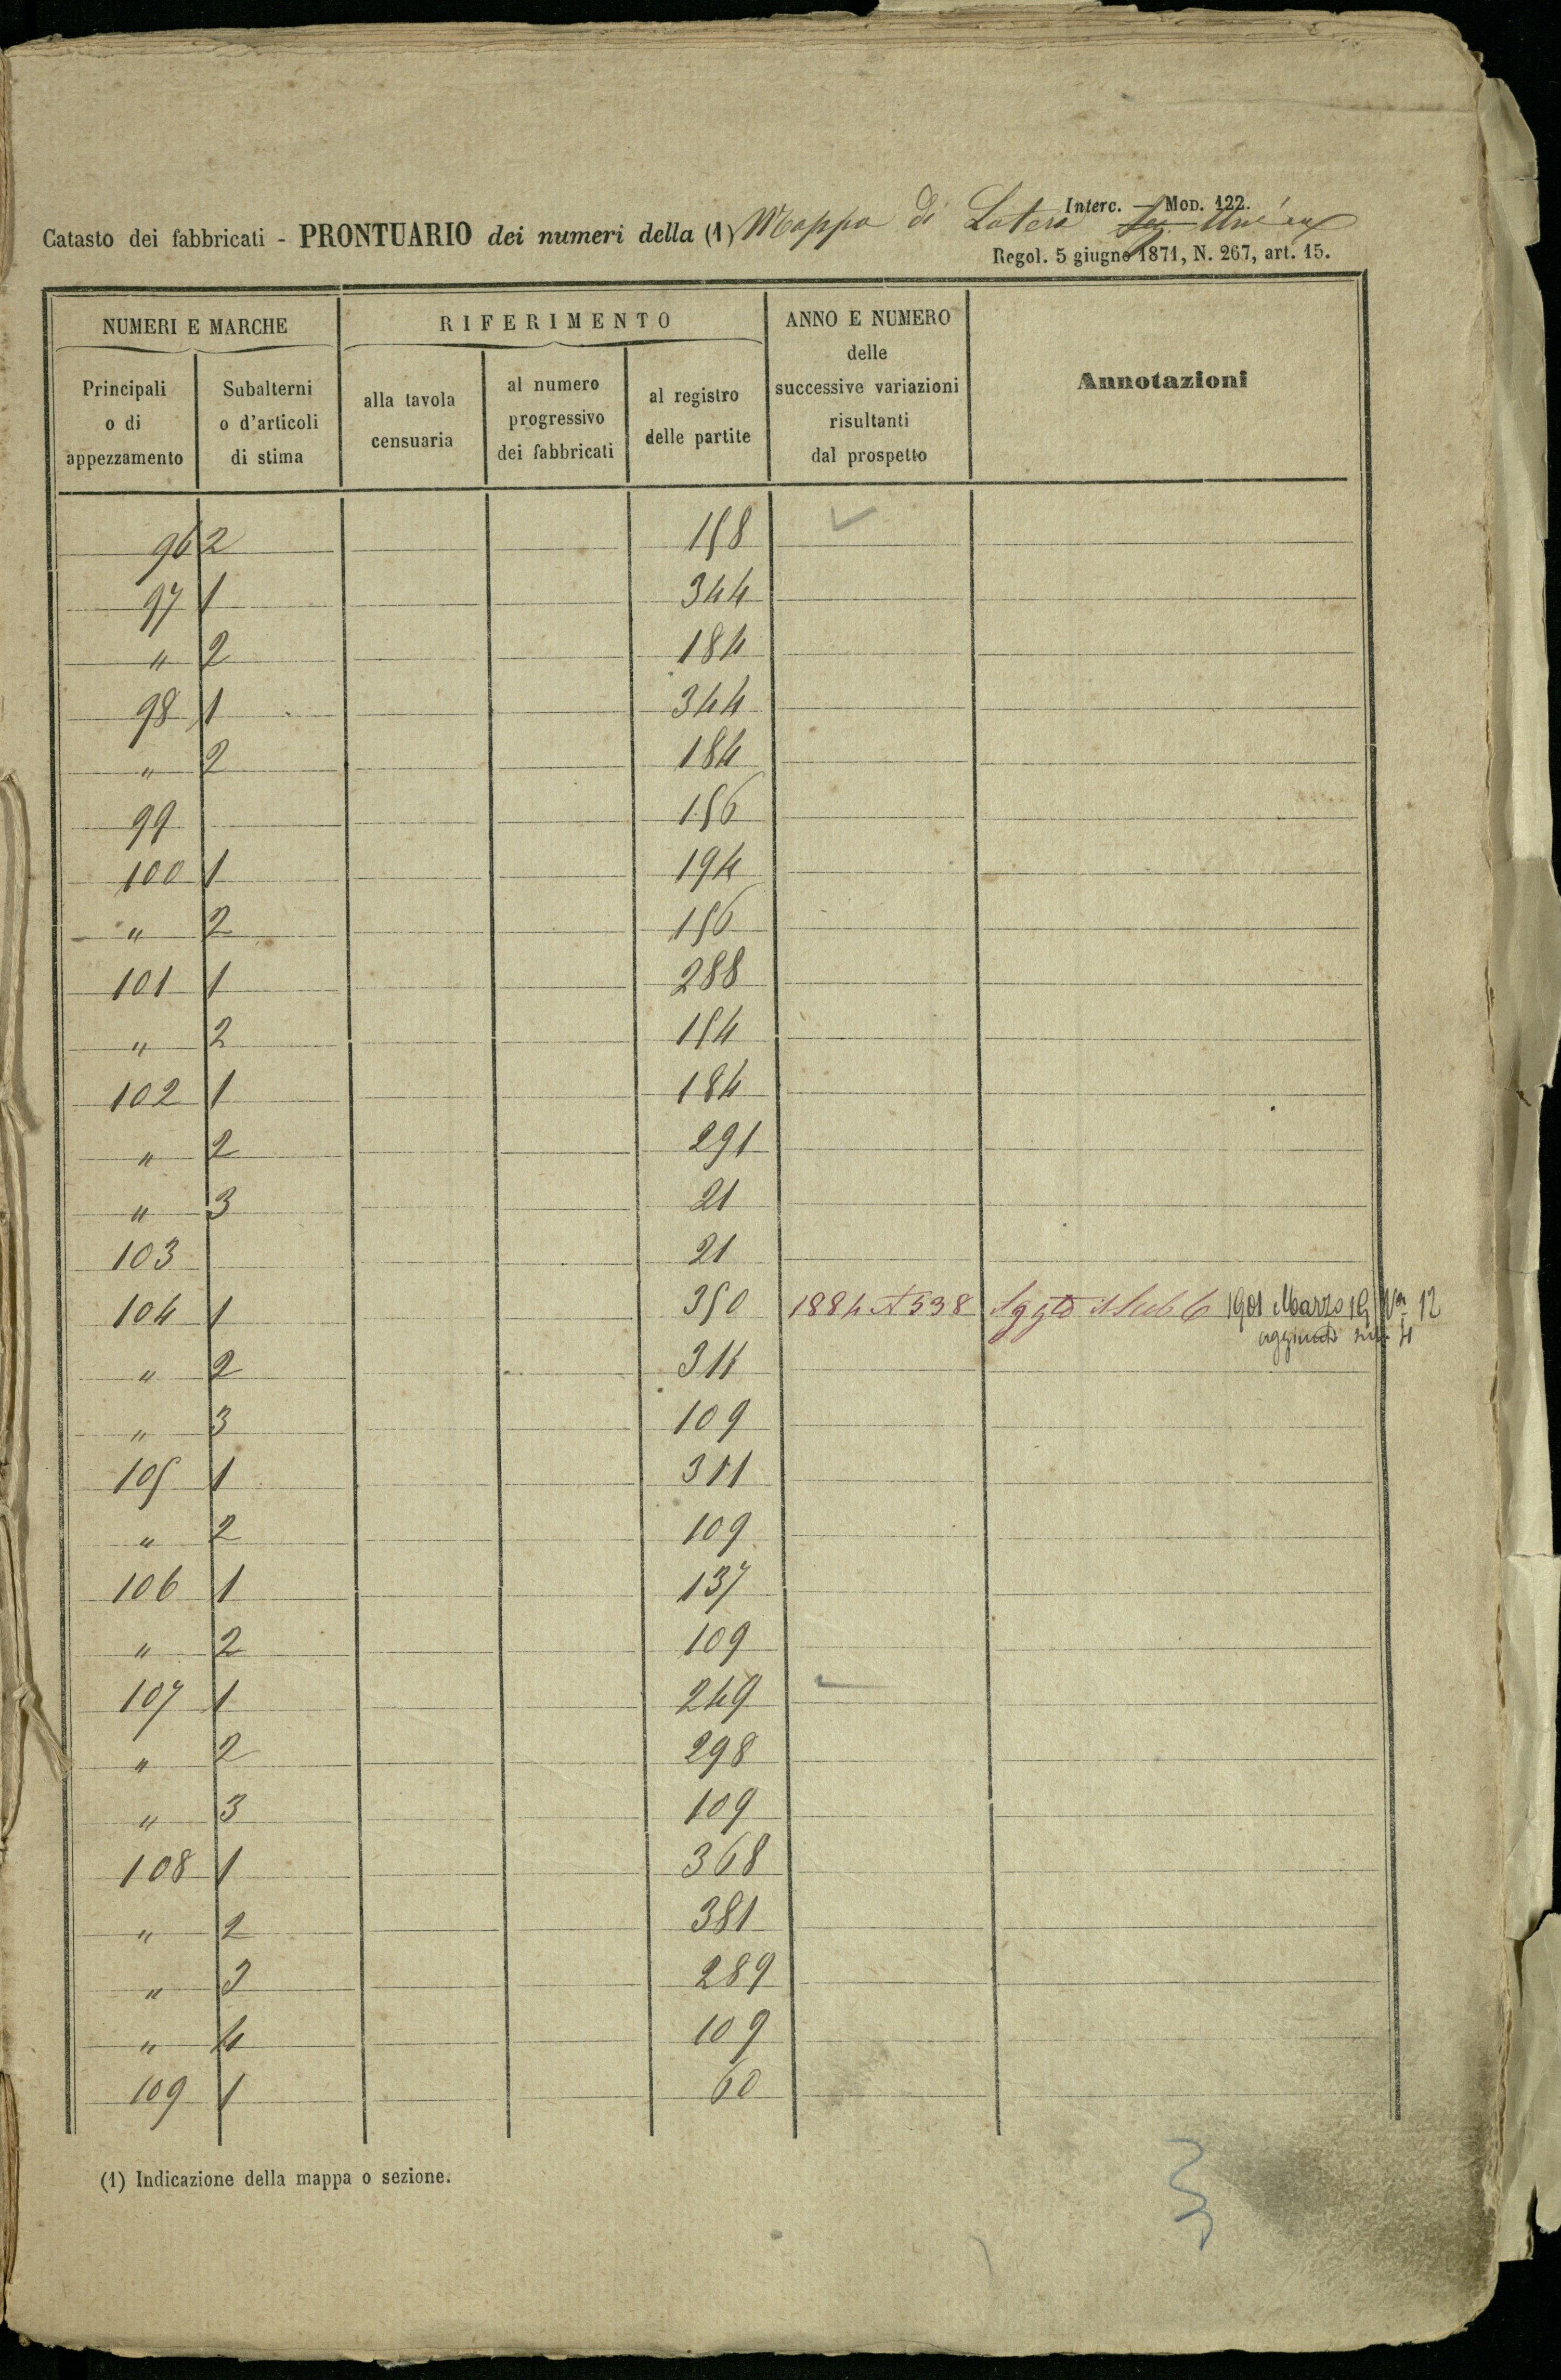 Interc. — Mod. 122.
Catasto dei fabbricati - PRONTUARIO dei numeri della (1) Mappa di Latera
Regol. 5 giugno 1871, N. 267, art. 15.
NUMERI E MARCHE
Principali o di appezzamento
Subalterni o d'articoli di stima
RIFERIMENTO
alla tavola censuaria
al numero progressivo dei fabbricati
al registro delle partite
ANNO E NUMERO delle successive variazioni risultanti dal prospetto
Annotazioni
96 2 158
97 1 344
" 2 184
98 1 344
" 2 184
99 156
100 1 194
" 2 156
101 1 288
" 2 154
102 1 184
" 2 291
" 3 21
103 21
104 1 350 1884 538 1901 Marzo 12
" 2
" 3 109
105 1 311
" 2 109
106 1 137
" 2 109
107 1 249
" 2 298
" 3 109
108 1 368
" 2 381
" 3 289
" 4 109
109 1 60
(1) Indicazione della mappa o sezione.